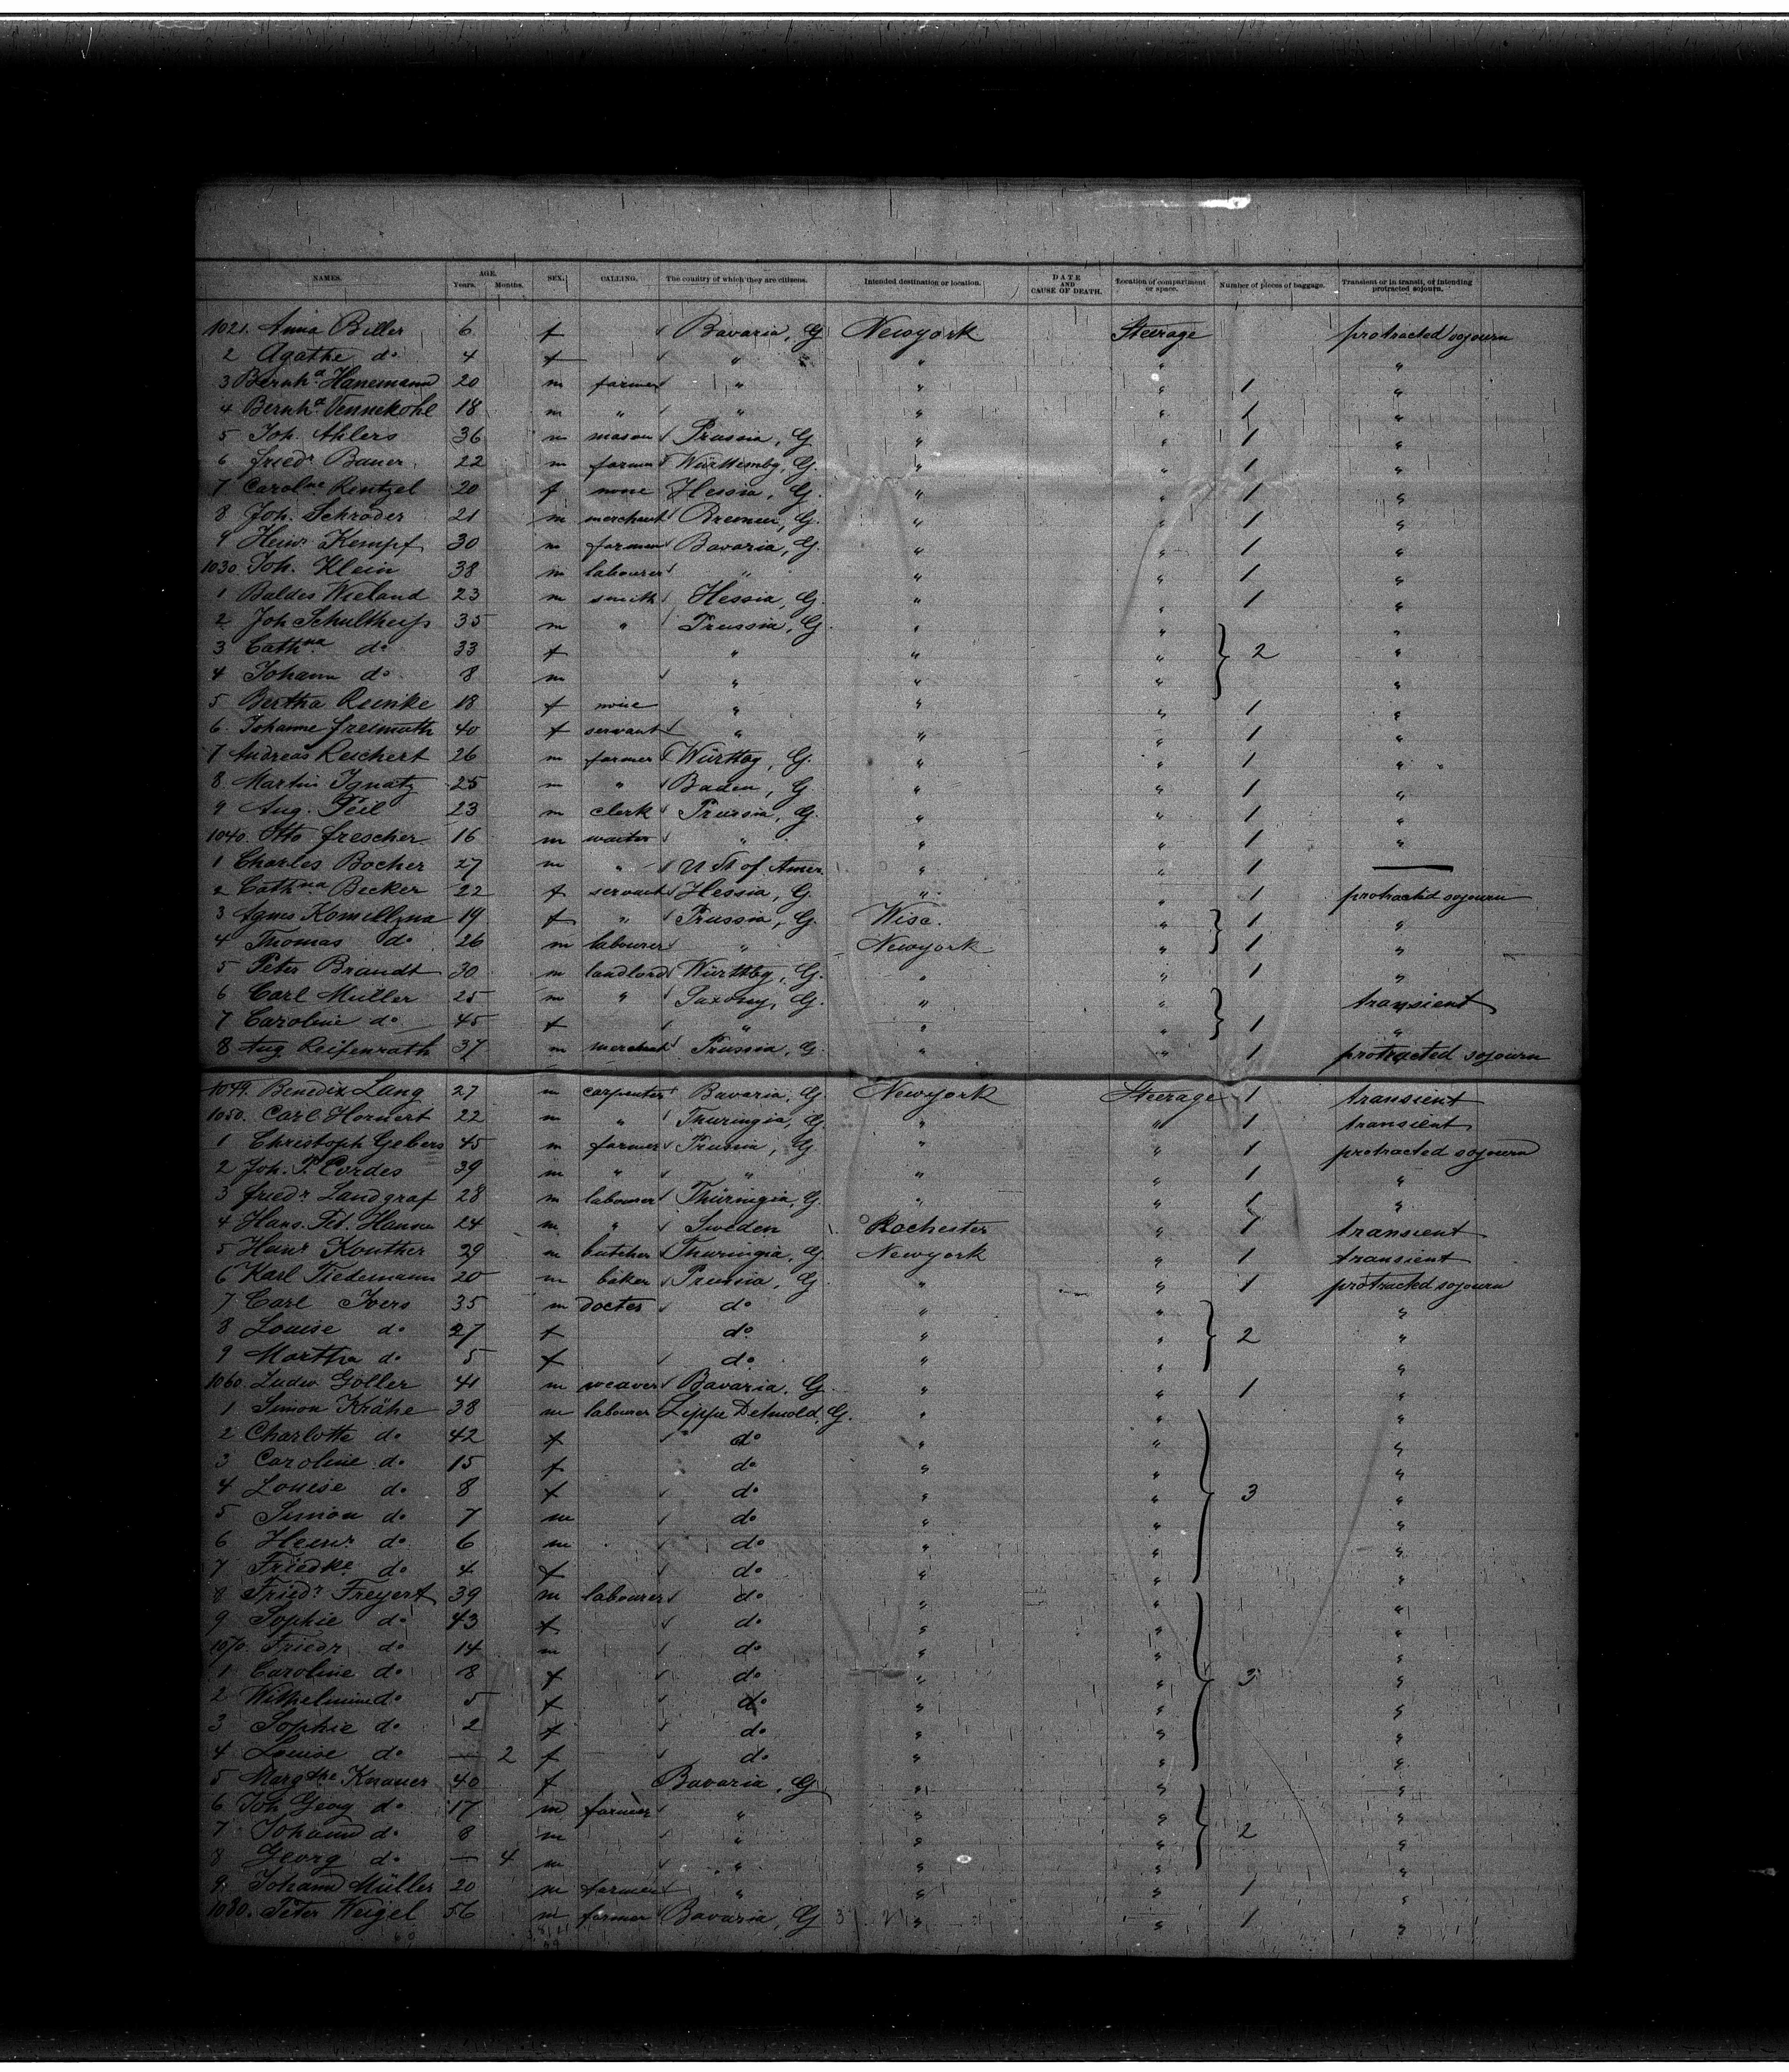 NAMES. AGE. Years. Months. SEX. CALLING. The country of which they are citizens. Intended destination or location. DATE AND CAUSE OF DEATH. Location of compartment or space. Number of pieces of baggage. Transient or in transit, of intending protracted sojourn.
1021. Anna Biller 6 f Bavaria, G Newyork Steerage protracted sojourn
2 Agathe do 4 f " " " "
3 Bernhd. Hanemann 20 m farmer " " " 1 "
4 Bernhd. Vennekohl 18 m " " " " 1 "
5 Joh. Ahlers 36 m mason Prussia, G " " 1 "
6 Friedr Bauer 22 m farmer Württembg, G. " " 1 "
7 Carolne Rentzel 20 f none Hessia, G. " " 1 "
8 Joh. Schröder 21 m merchant Bremen, G. " " 1 "
9 Heinr Kempf 30 m farmer Bavaria, G. " " 1 "
1030. Joh. Klein 38 m labourer " " " 1 "
1 Baldes Wieland 23 m smith Hessia, G. " " 1 "
2 Joh Schultheiß 35 m " Prussia, G. " " "
3 Cathna do 33 f " " " 2 "
4 Johann do 8 m " " " "
5 Bertha Reinke 18 f none " " " 1 "
6. Johanne Freimuth 40 f servant " " " 1 "
7 Andreas Reichert 26 m farmer Württbg, G. " " 1 "
8. Martin Ignatz 25 m " Baden, G. " " 1 "
9 Aug. Peil 23 m clerk Prussia, G. " " 1 "
1040. Otto Frescher 16 m waiter " " " 1 "
1 Charles Bocher 27 m " U St of Amer. " " 1 —
2 Cathna Becker 22 f servant Hessia, G. " " 1 protracted sojourn
3 Agnes 19 f " Prussia, G. Wisc. " 1 "
4 Thomas do 26 m labourer " Newyork " 1 "
5 Peter Brandt 30 m landlord Württbg, G. " " 1 "
6 Carl Müller 25 m " Saxony, G. " " transient
7 Caroline do 45 f " " " 1 "
8 Aug Reifenrath 37 m merchant Prussia, G. " " 1 protracted sojourn
1049. Benedix Lang 27 m carpenter Bavaria, G. Newyork Steerage 1 transient
1050. Carl Hornert 22 m " Thuringia, G. " " 1 transient
1 Christoph Gebers 45 m farmer Prussia, G " " 1 protracted sojourn
2 Joh. P. Cordes 39 m " " " " 1 "
3 Friedr Landgraf 28 m labourer Thüringia, G. " " 1 "
4 Hans. Hansen 24 m " Sweden Rochester " 1 transient
5 Heinr Kouther 29 m butcher Thuringia, G. Newyork " 1 transient
6 Karl Tiedemann 20 m baker Prussia, G " " 1 protracted sojourn
7 Carl Ivers 35 m docter do " " "
8 Louise do 27 f do " " 2 "
9 Martha do 5 f do " " "
1060. Ludw Göller 41 m weaver Bavaria. G. " " 1 "
1 Simon Krähe 38 m labourer Lippe Detmold, G. " " "
2 Charlotte do 42 f do " " "
3 Caroline do 15 f do " " "
4 Louise do 8 f do " " 3 "
5 Simon do 7 m do " " "
6 Heinr do 6 m do " " "
7 Friedke do 4 f do " " "
8 Friedr Freyert 39 m labourer do " " "
9 Sophie do 43 f do " " "
1070. Friedr do 14 m do " " "
1 Caroline do 8 f do " " 3 "
2 Wilhelmine do 5 f do " " "
3 Sophie do 2 f do " " "
4 Louise do — 2 f do " " "
5 Margthe Knauer 40 f Bavaria, G " " "
6 Joh Georg do 17 m farmer " " " "
7 Johann do 8 m " " " 2 "
8 Georg do — 4 m " " " "
9. Johann Müller 20 m farmer " " " 1 "
1080. Peter Weigel 56 m farmer Bavaria, G " " 1 "